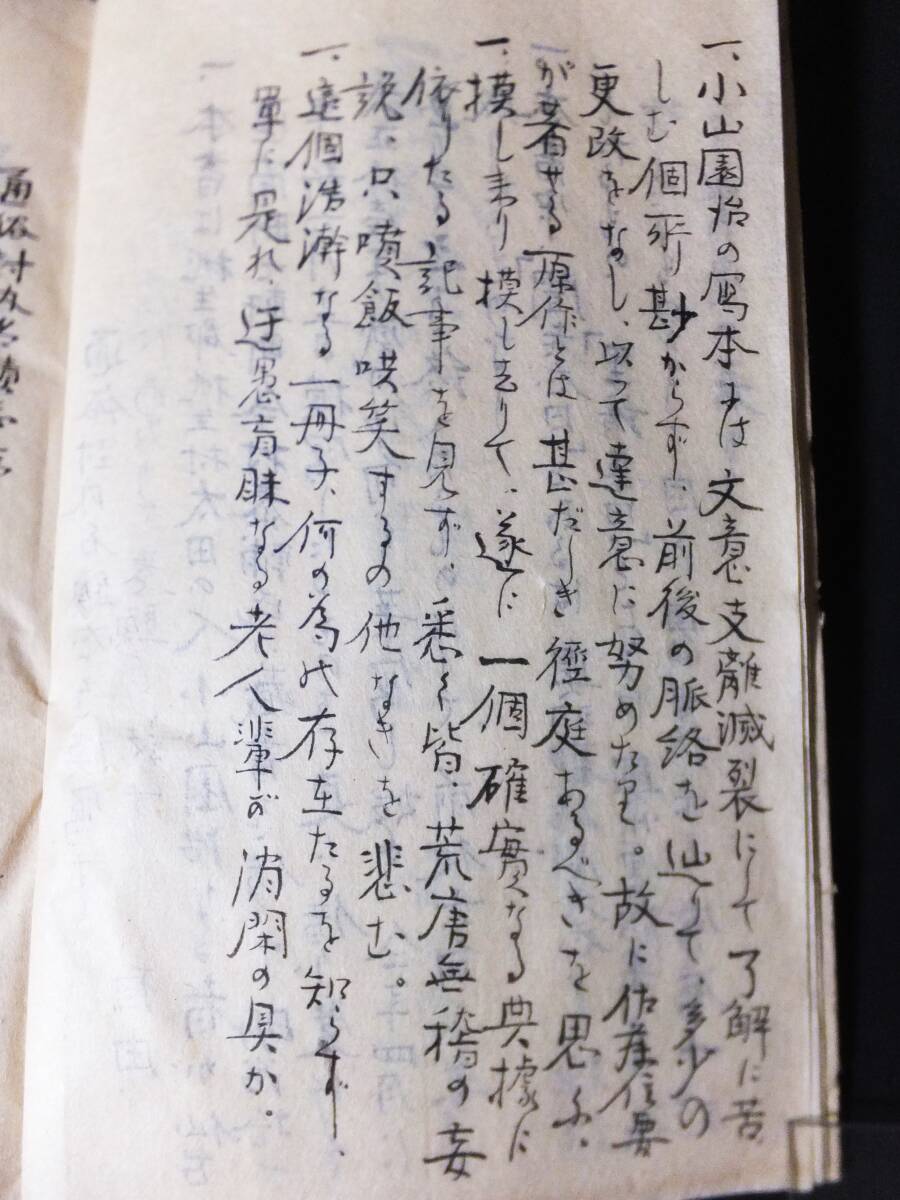 一、小山園治の寫本には文意支離滅裂にして了解に苦
しむ個所尠からず、前後の脈絡を辿りて、多少の
更改をなし、以つて達意に努めたり。故に佐藤信要
が著せる原作とは甚だしき徑庭あるべきを思ふ、
一、摸し来り摸し去りて、遂に一個確實なる典據に
依りたる記事を見ず、悉く皆、荒唐無稽の妄
説、只噴飯哄笑するの他なきを悲む。
一、這個浩瀚なる一冊子、何の為め存在たるを知らず、
單に是れ、迂愚盲昧なる老人輩が消閑の具か。